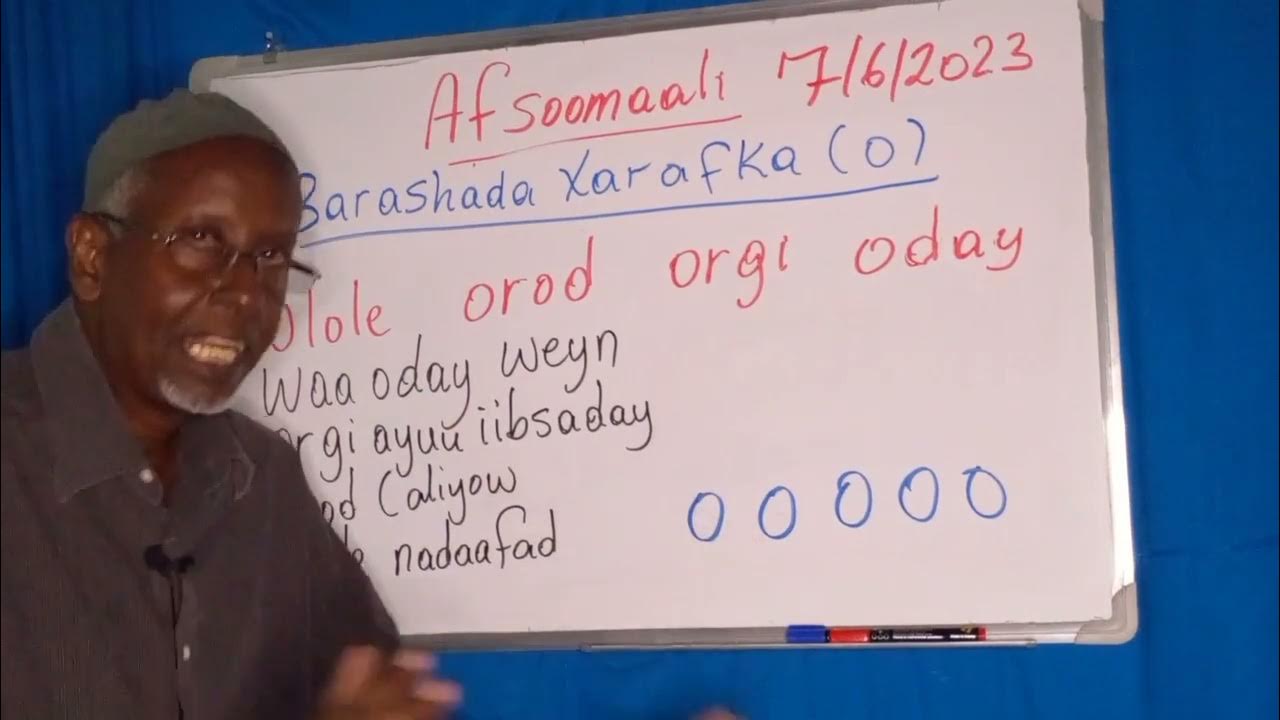 Afsoomaali 7/6/2023
Barashada Xarafka (o)
olole orod orgi oday
Waa oday weyn
orgi ayuu iibsaday
Caliyow
nadaafad
o o o o o